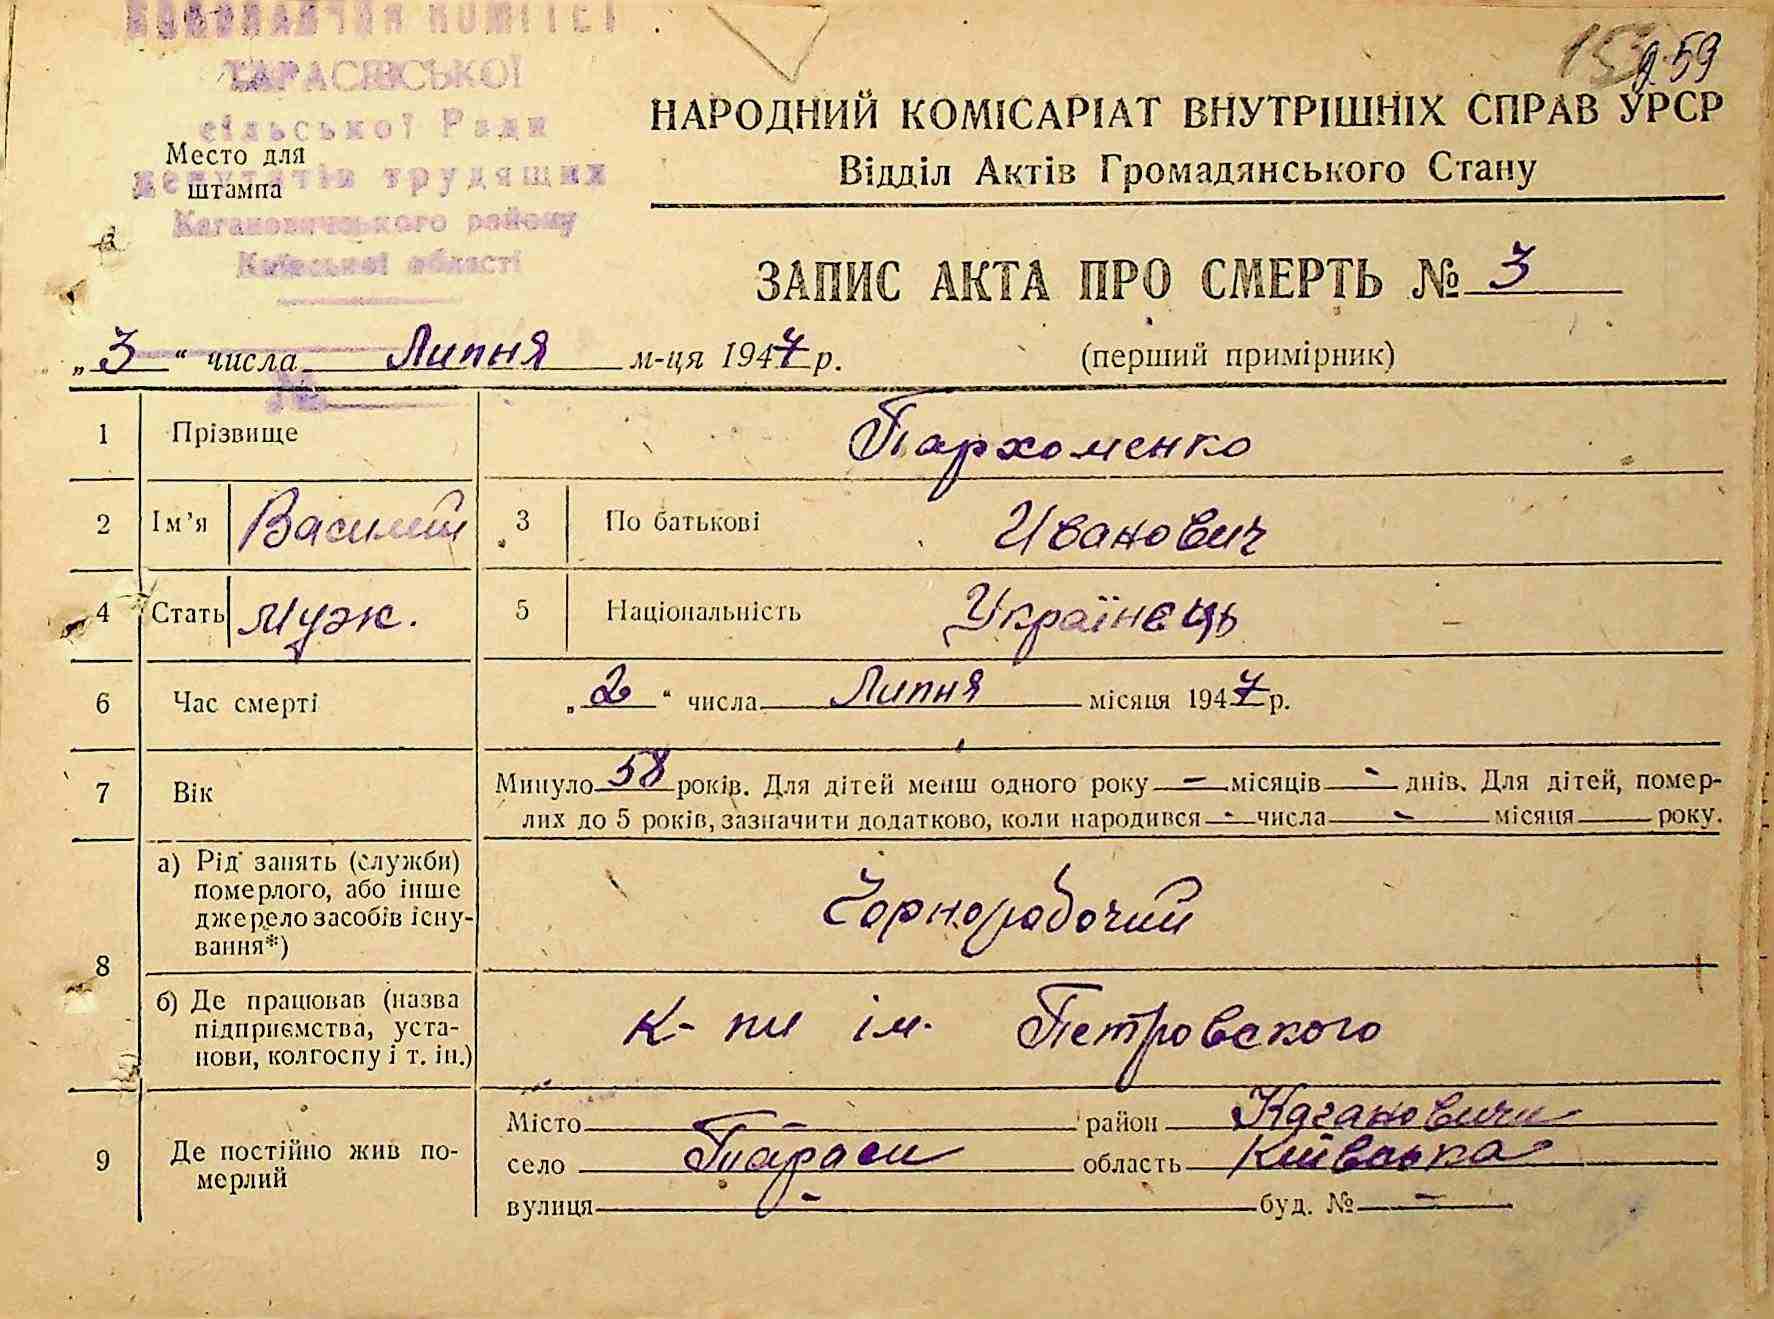 ВИКОНАВЧИЙ КОМІТЕТ
ТАРАСІВСЬКОЇ
сільської Ради
депутатів трудящих
Кагановичського району
Київської області
№
Место для
штампа
259
НАРОДНИЙ КОМІСАРІАТ ВНУТРІШНІХ СПРАВ УРСР
Відділ Актів Громадянського Стану
ЗАПИС АКТА ПРО СМЕРТЬ № 3
„3“ числа Липня м-ця 1947 р.
(перший примірник)
1 Прізвище Пархоменко
2 Ім’я Василий 3 По батькові Иванович
4 Стать муж. 5 Національність Українєць
6 Час смерті „2“ числа Липня місяця 1947 р.
7 Вік Минуло 58 років. Для дітей менш одного року - місяців - днів. Для дітей, помер-
лих до 5 років, зазначити додатково, коли народився - числа - місяця року.
8 а) Рід занять (служби)
померлого, або інше
джерело засобів існу-
вання*)
Чорнорабочий
б) Де працював (назва
підприємства, уста-
нови, колгоспу і т. ін.)
к-пи ім. Петровского
9 Де постійно жив по-
мерлий
Місто - район Кагановичи
село Тараси область Київська
вулиця - буд. № -